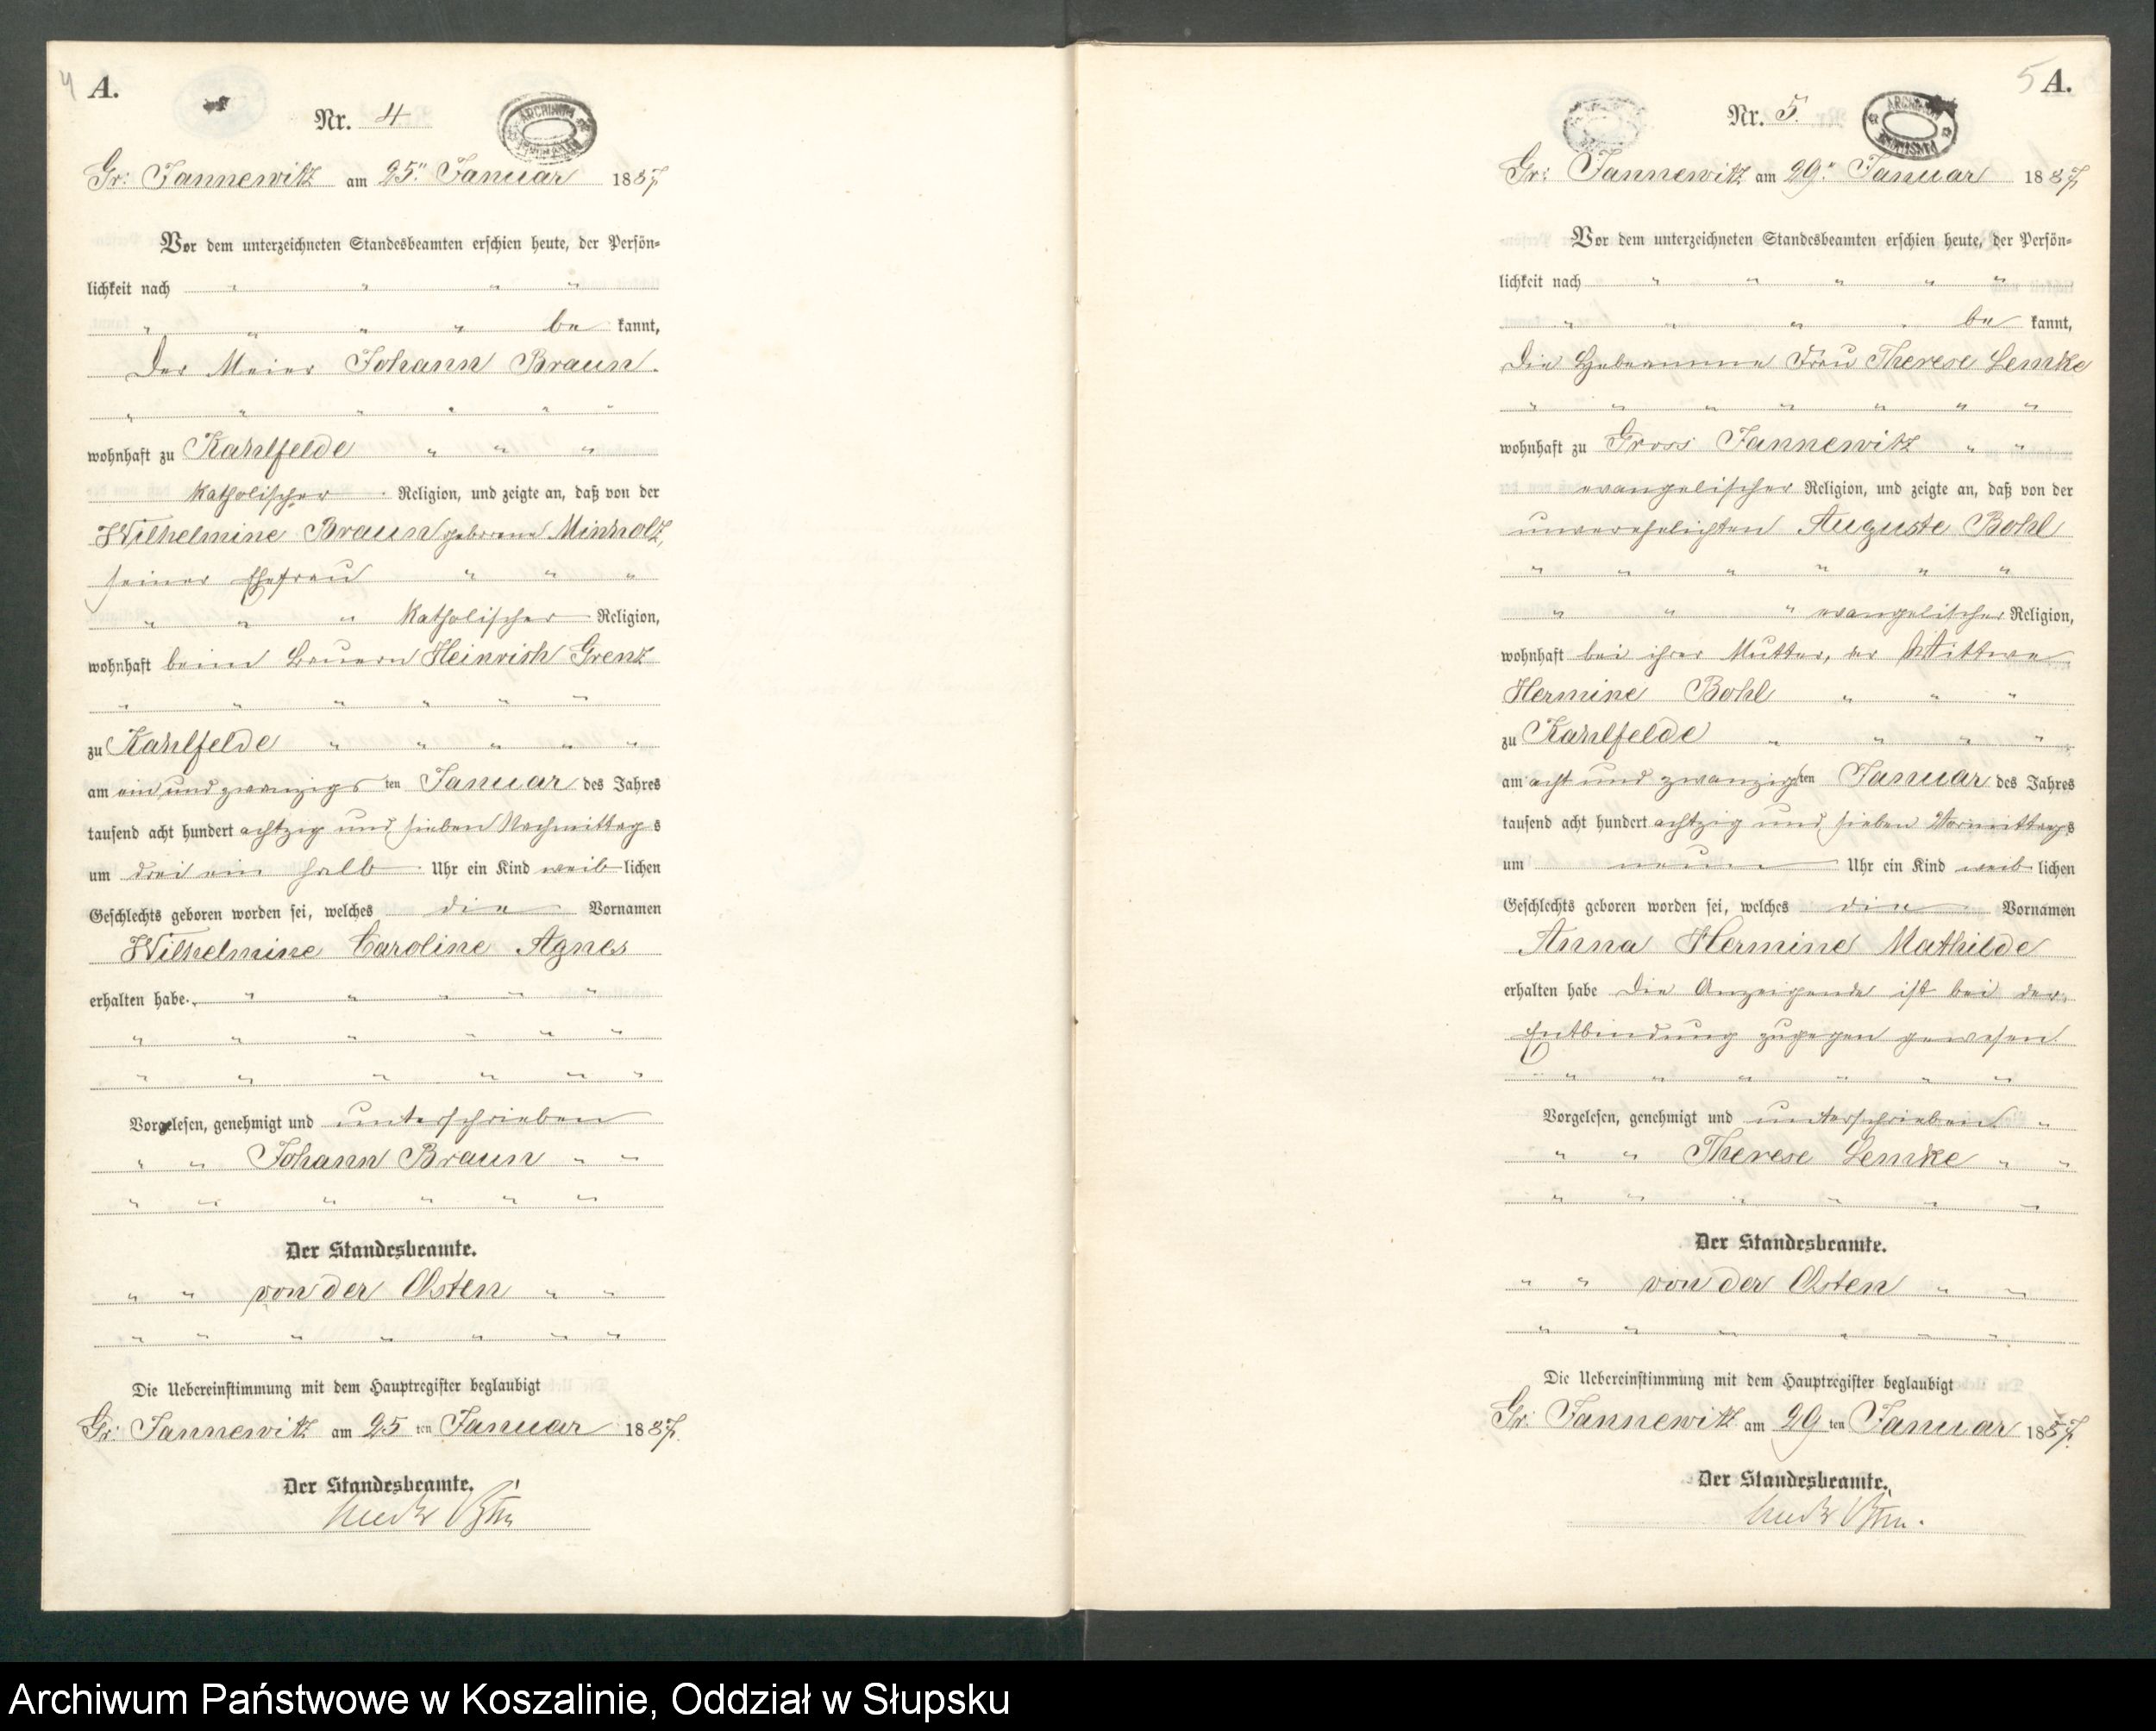 4
A.
Nr. 4
ARCHIWUM
Gr: Jannewitz am 25ten Januar 1887
Vor dem unterzeichneten Standesbeamten erschien heute, der Persön=
lichkeit nach " " " "
" " " " be kannt,
der Meier Johann Braun.
" " " " " "
wohnhaft zu Kahlfelde " " "
katholischer Religion, und zeigte an, daß von der
Wilhelmine Braun geborene Minholz,
seiner Ehefrau " " "
" " " katholischer Religion,
wohnhaft beim Bauern Heinrich Grenz
" " " " " "
zu Kahlfelde " " " " "
am ein und zwanzigs ten Januar des Jahres
tausend acht hundert achtzig und sieben Nachmittags
um drei ein halb Uhr ein Kind weib lichen
Geschlechts geboren worden sei, welches die Vornamen
Wilhelmine Caroline Agnes
erhalten habe. " " " " "
" " " " " "
" " " " " "
Vorgelesen, genehmigt und unterschrieben
" " Johann Braun " "
" " " " " "
Der Standesbeamte.
" " von der Osten " "
" " " " " " "
Die Uebereinstimmung mit dem Hauptregister beglaubigt
Gr: Jannewitz am 25 ten Januar 1887.
Der Standesbeamte.
5
A.
Nr. 5.
ARCHIWUM
Gr: Jannewitz am 29ten Januar 1887
Vor dem unterzeichneten Standesbeamten erschien heute, der Persön=
lichkeit nach " " " " "
" " " " be kannt,
die Hebeamme Frau Therese Lemke
" " " " " " "
wohnhaft zu Gross Jannewitz " "
evangelischer Religion, und zeigte an, daß von der
unverehelichten Auguste Bohl
" " " " " "
" " " evangelischer Religion,
wohnhaft bei ihrer Mutter, der Wittwe
Hermine Bohl " " "
zu Kahlfelde " " " "
am acht und zwanzigsten Januar des Jahres
tausend acht hundert achtzig und sieben Vormittags
um neun Uhr ein Kind weib lichen
Geschlechts geboren worden sei, welches die Vornamen
Anna Hermine Mathilde
erhalten habe Die Anzeigende ist bei der
Entbindung zugegen gewesen.
" " " " " "
Vorgelesen, genehmigt und unterschrieben. "
" " Therese Lemke " "
" " " " " "
Der Standesbeamte.
" " von der Osten " "
" " " " " "
Die Uebereinstimmung mit dem Hauptregister beglaubigt
Gr: Jannewitz am 29 ten Januar 1887.
Der Standesbeamte.
Archiwum Państwowe w Koszalinie, Oddział w Słupsku